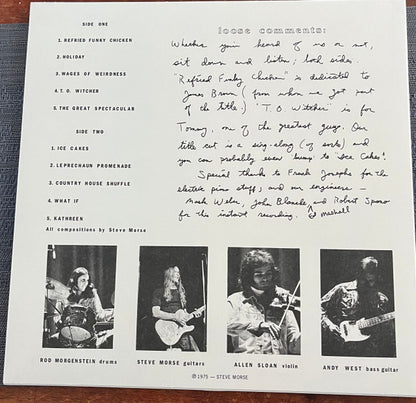 SIDE ONE
1. REFRIED FUNKY CHICKEN
2. HOLIDAY
3. WAGES OF WEIRDNESS
4. T. O. WITCHER
5. THE GREAT SPECTACULAR
SIDE TWO
1. ICE CAKES
2. LEPRECHAUN PROMENADE
3. COUNTRY HOUSE SHUFFLE
4. WHAT IF
5. KATHREEN
All compositions by Steve Morse
loose comments:
Whether you heard of us or not,
sit down and listen; both sides.
"Refried Funky Chicken" is dedicated to
James Brown (from whom we got part
of the title.) "T.O. Witcher" is for
Tommy, one of the greatest guys. Our
title cut is a sing-along (of sorts) and
you can probably even 'bump' to "Ice Cakes".
Special thanks to Frank Josephs for the
electric piano stuff, and our engineers –
Mark Weber, John Blanche and Robert
for this instant recording. Ed
ROD MORGENSTEIN drums
STEVE MORSE guitars
ALLEN SLOAN violin
ANDY WEST bass guitar
© 1975 — STEVE MORSE